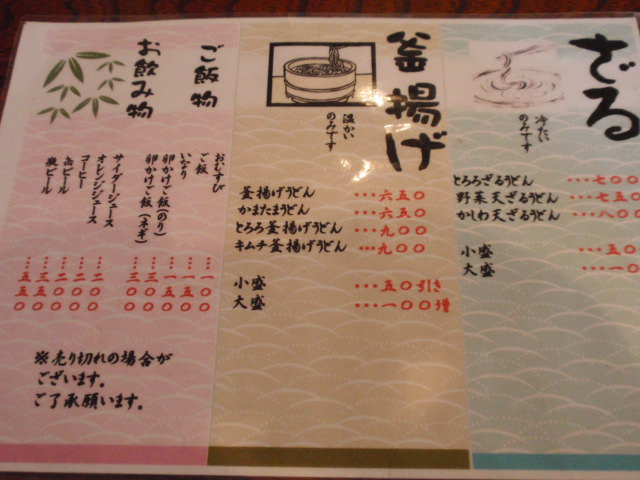 ざる
冷たい
のみです
とろろざるうどん …七〇〇
野菜天ざるうどん …七五〇
かしわ天ざるうどん …八〇〇
小盛 …五〇
大盛 …一〇
釜揚げ
温かい
のみです
釜揚げうどん …六五〇
かまたまうどん …六五〇
とろろ釜揚げうどん …九〇〇
キムチ釜揚げうどん …九〇〇
小盛 …五〇引き
大盛 …一〇〇増
ご飯物
おむすび …一〇〇
ご飯 …一五〇
いなり …一五〇
卵かけご飯(のり) …三〇〇
卵かけご飯(ネギ) …三五〇
お飲み物
サイダージュース …二〇〇
オレンジジュース …二〇〇
コーヒー …二〇〇
缶ビール …三五〇
瓶ビール …五五〇
※売り切れの場合が
ございます。
ご了承願います。